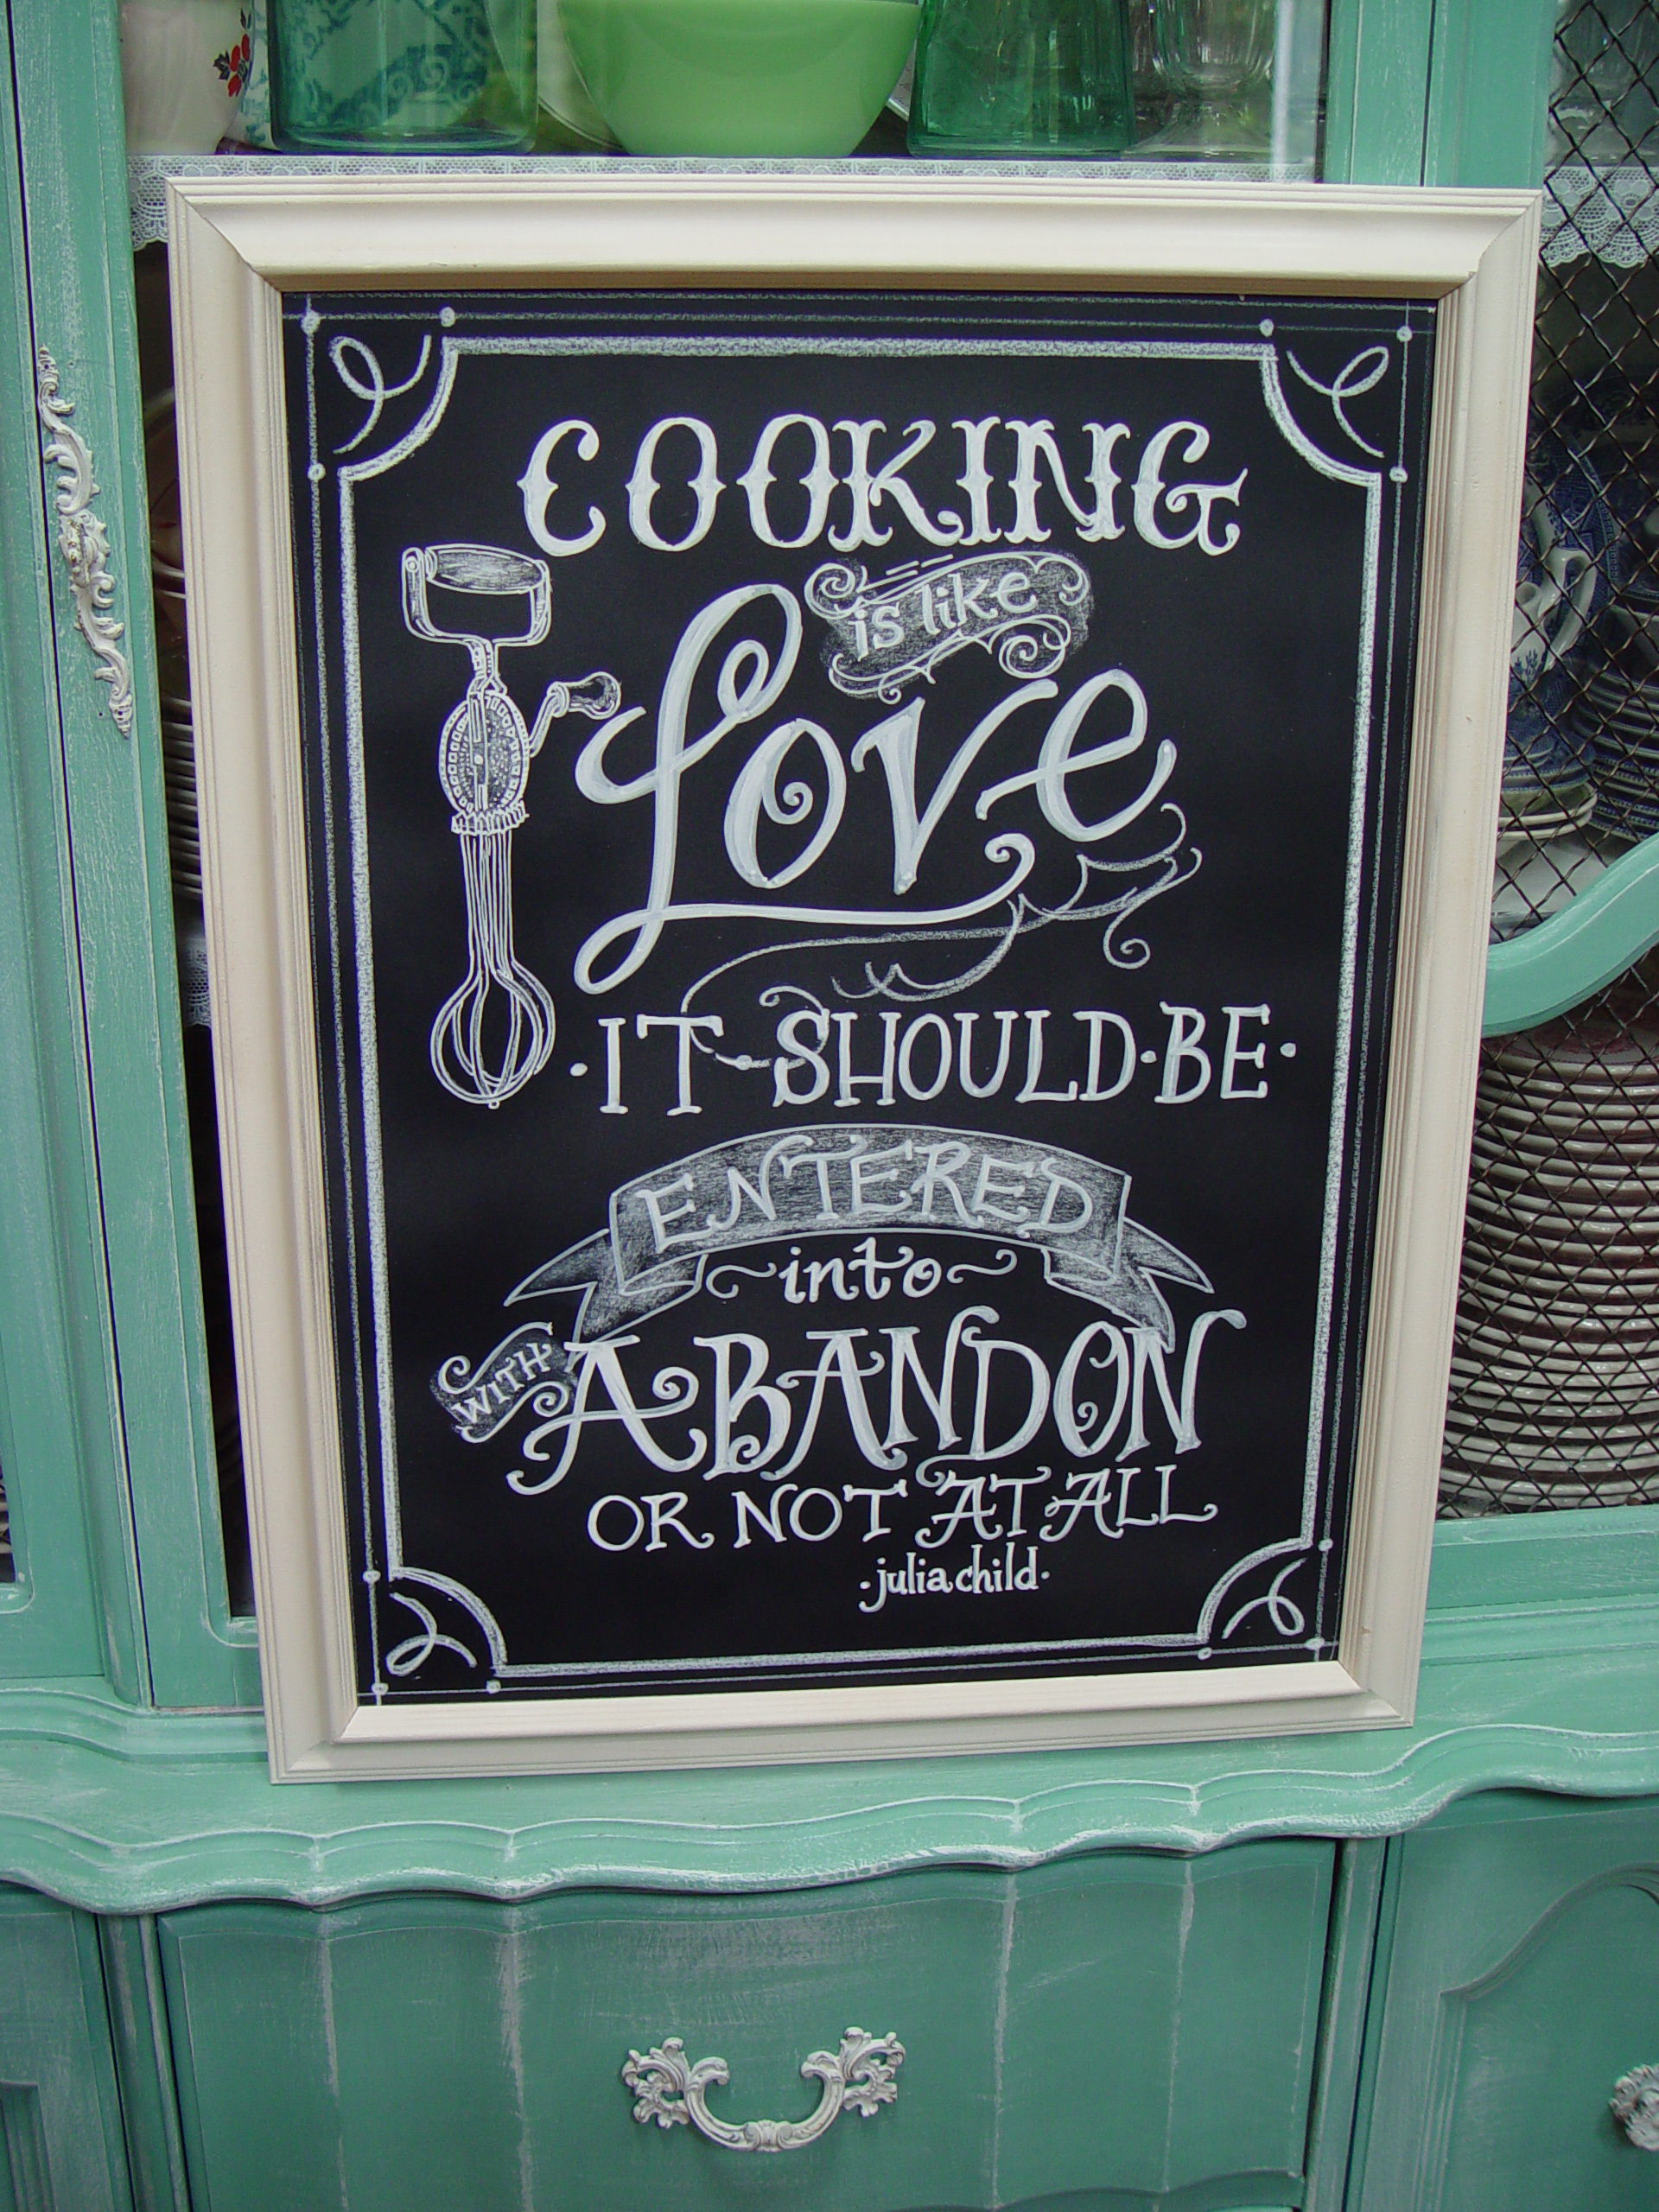 COOKING
is like
Love
·IT SHOULD·BE·
ENTERED
into
WITH ABANDON
OR NOT AT ALL
·julia child·